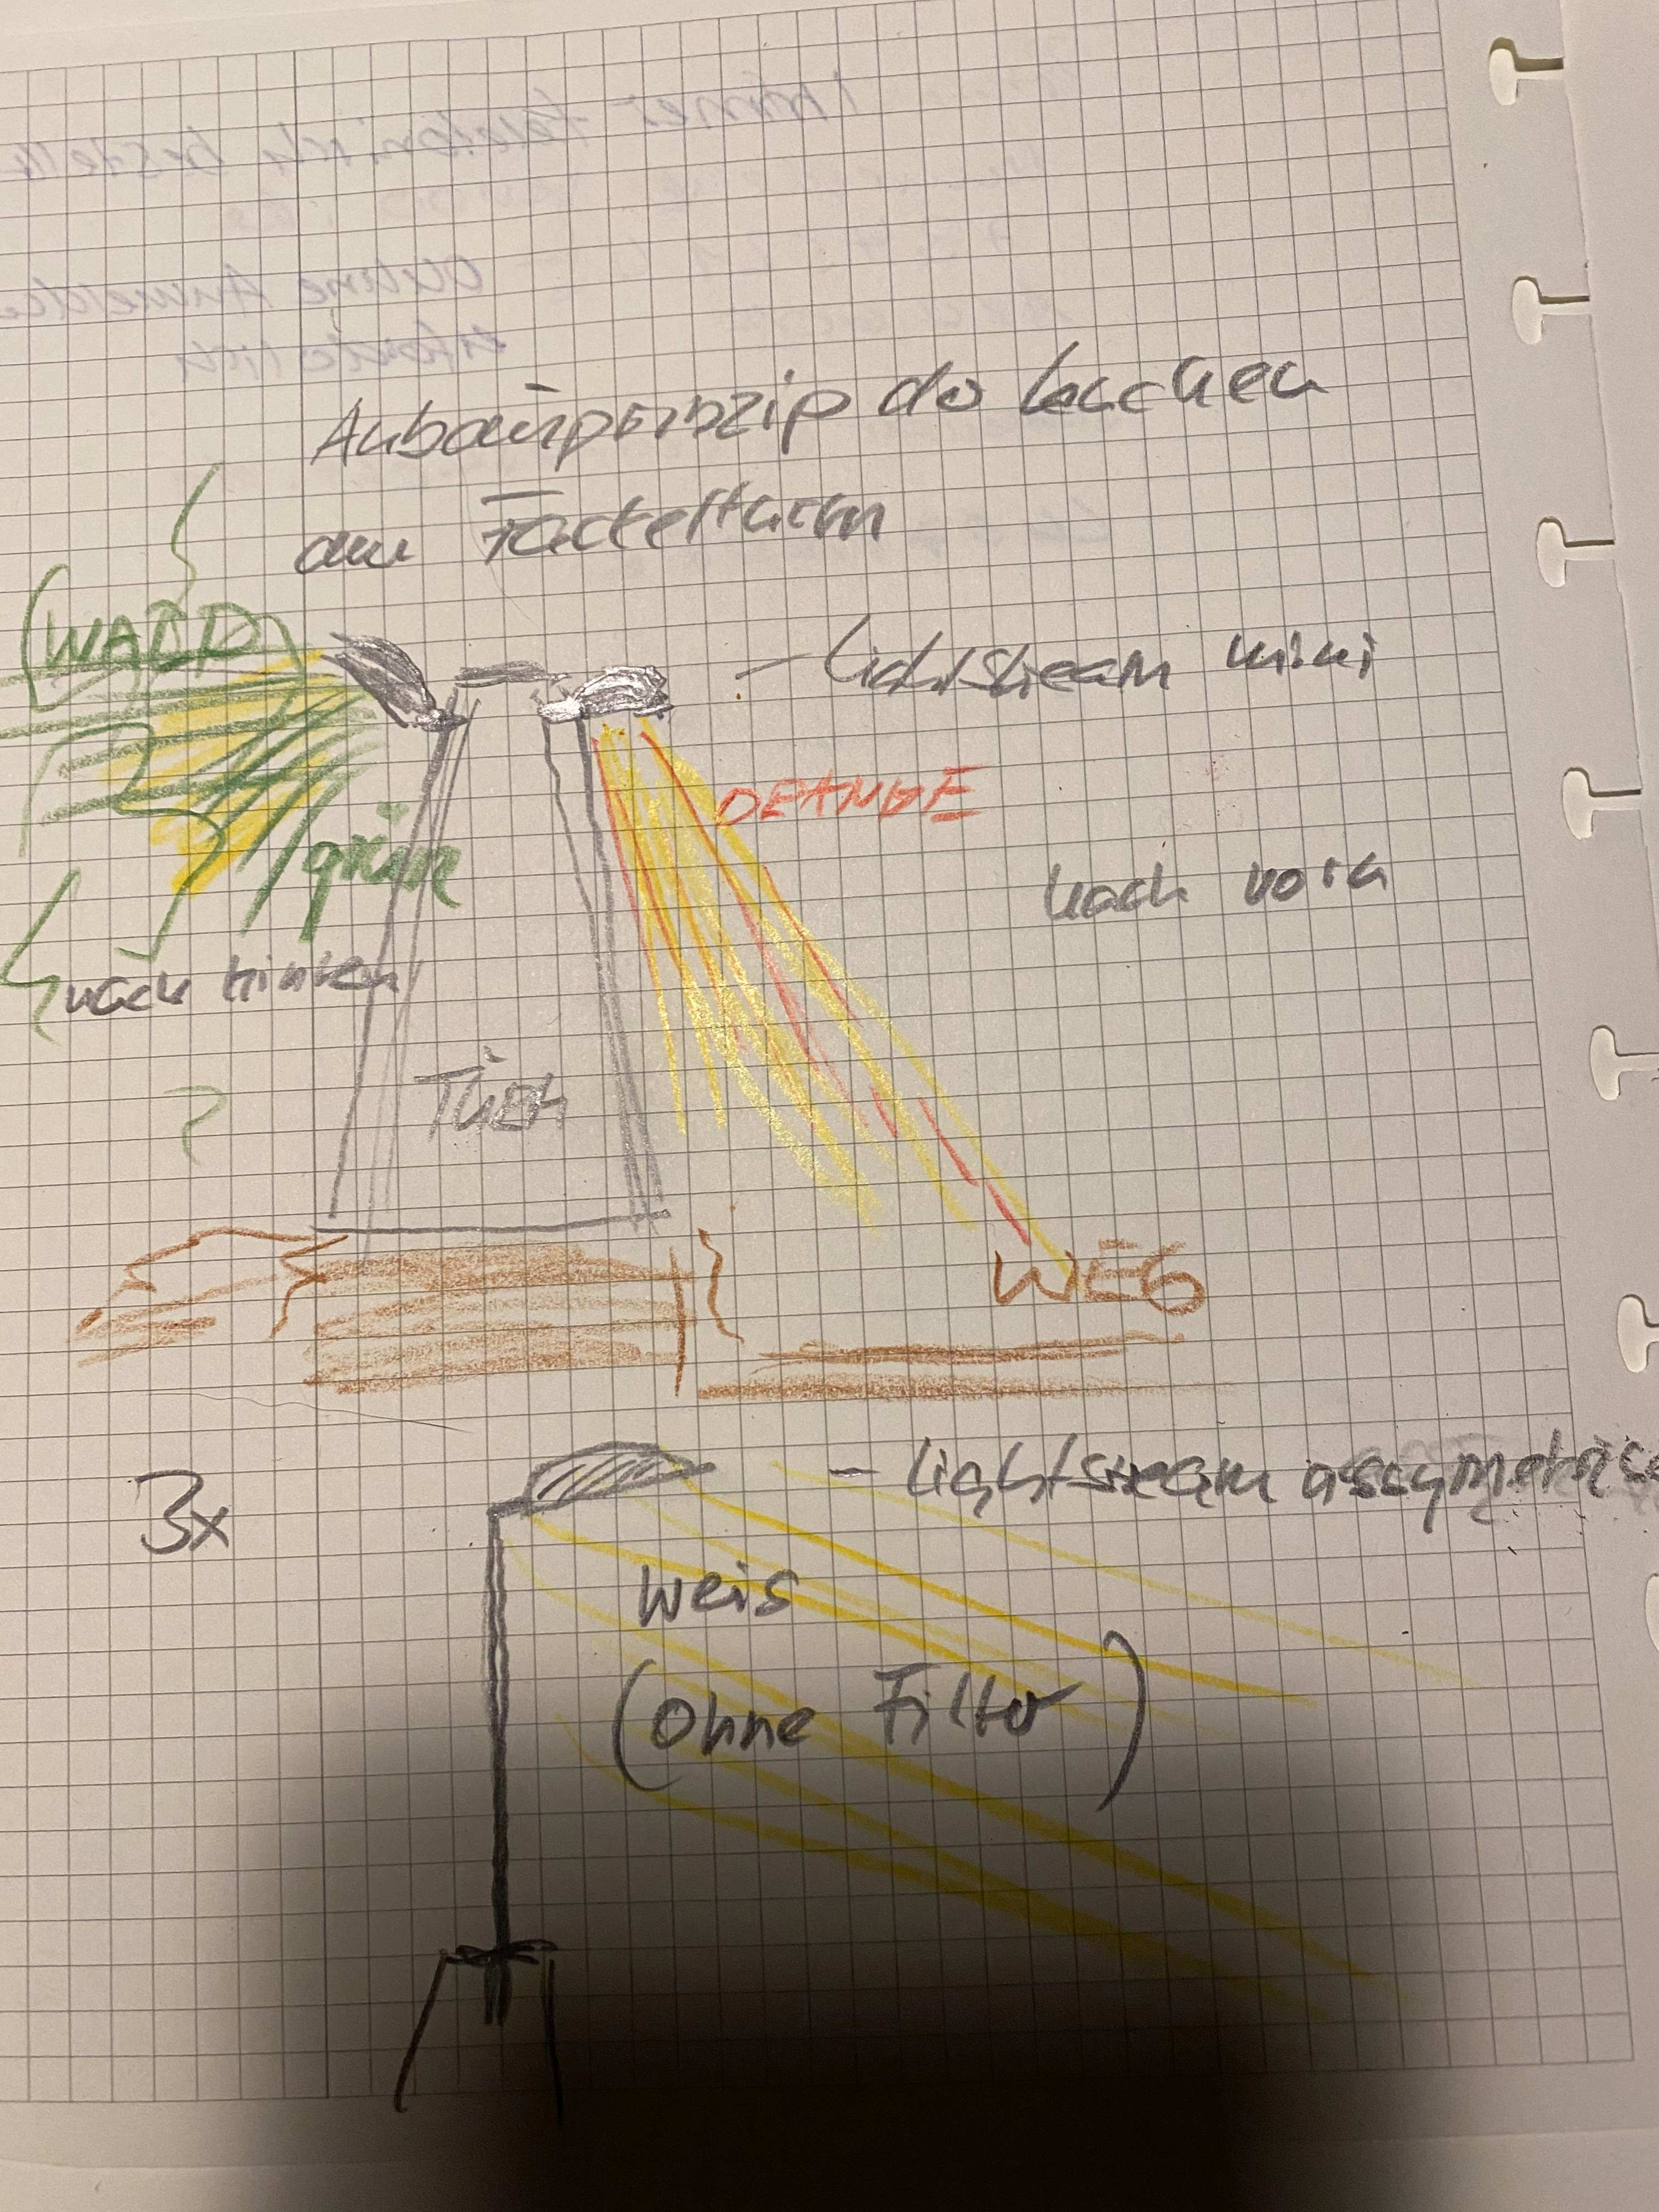 Anbauprinzip der Leuchten
am Fackelturm
(WALD)
- Lichtstream mini
ORANGE
grün
nach vorn
nach hinten
Turm
?
WEG
3x
- Lightstream assymetrisc
weis
(Ohne Filter)